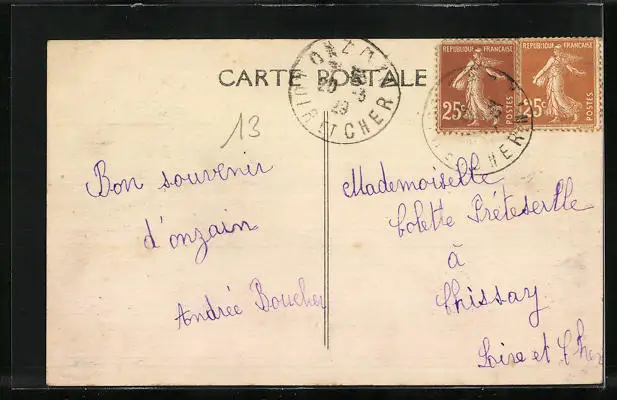 CARTE POSTALE
ONZAIN
20 -3
29
LOIR ET CHER
REPUBLIQUE FRANÇAISE
25c
POSTES
REPUBLIQUE FRANÇAISE
25c
POSTES
13
Bon souvenir
d'onzain
Andrée Boucher
Mademoiselle
Colette Préteseille
à
Chissay
Loire et Cher